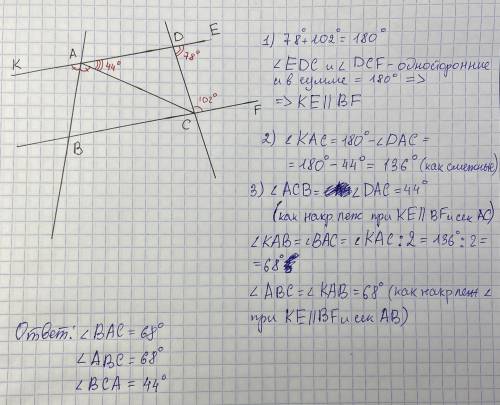 K
A
D
E
44°
78°
102°
B
C
F
1) 78°+102°=180°
∠EDC и ∠DCF - односторонние
и в сумме = 180° =>
=> KE || BF
2) ∠KAC = 180° - ∠DAC =
= 180° - 44° = 136° (как смежные)
3) ∠ACB = ∠DAC = 44°
(как накр леж при KE || BF и сек AC)
∠KAB = ∠BAC = ∠KAC : 2 = 136° : 2 =
= 68°
∠ABC = ∠KAB = 68° (как накр леж ∠
при KE || BF и сек AB)
Ответ: ∠BAC = 68°
∠ABC = 68°
∠BCA = 44°